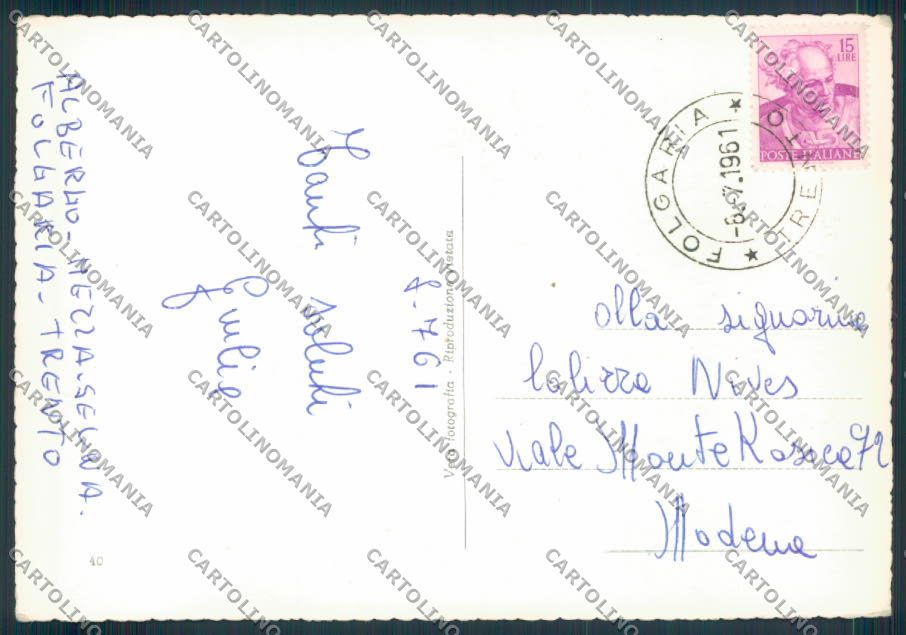 ALBERGO-MEZZA-SELVA.
FOLGARIA-TRENTO
8-7 61
Tanti saluti
Giulia
Vera fotografia - Riproduzione vietata
40
15
LIRE
POSTE ITALIANE
FOLGARIA ★ TRENTO ★
-8.7.1961
alla signorina
Nives
viale Monte Kosica 72
Modena
CARTOLINOMANIA